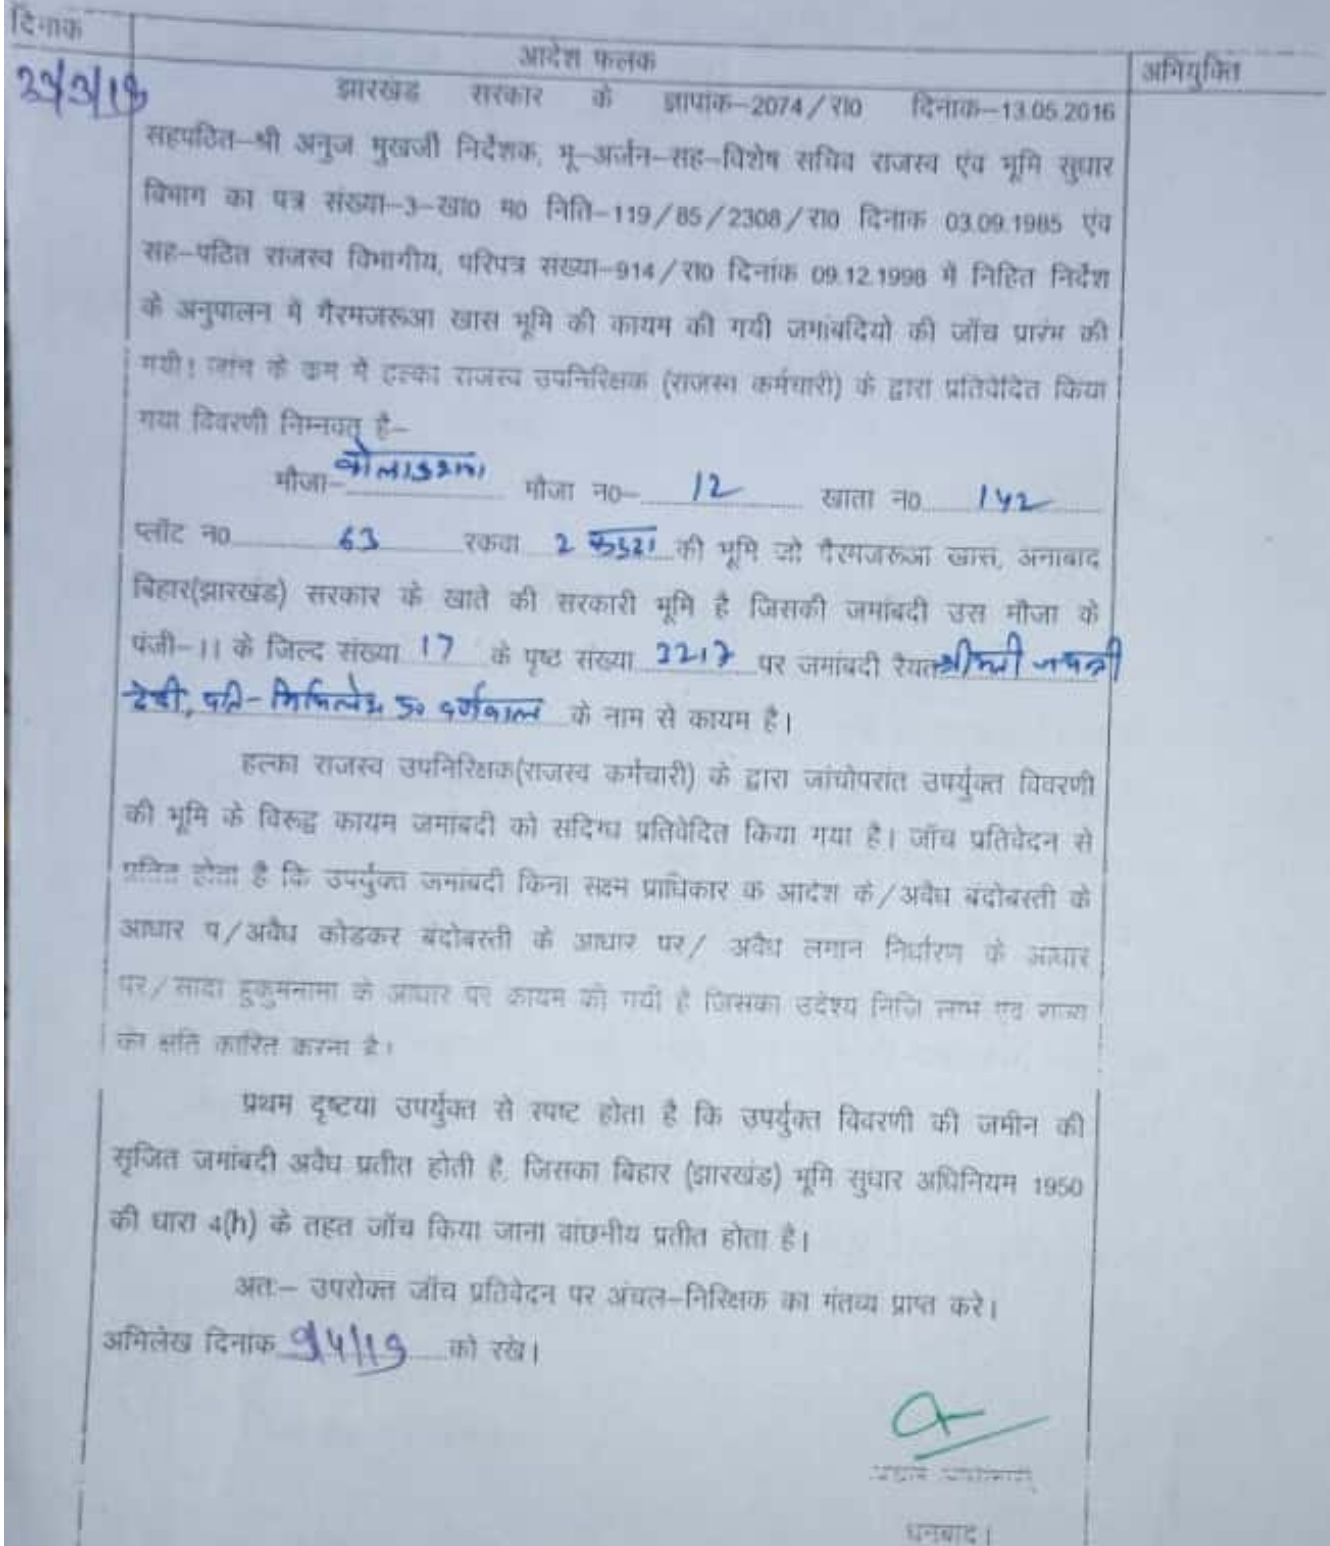 दिनांक
आदेश फलक
अभियुक्ति
झारखंड सरकार के ज्ञापांक-2074/रा0 दिनांक-13.05.2016
सहपठित-श्री अनुज मुखर्जी निर्देशक, भू-अर्जन-सह-विशेष सचिव राजस्व एंव भूमि सुधार
विभाग का पत्र संख्या-3-खा0 म0 निति-119/85/2308/रा0 दिनांक 03.09.1985 एंव
सह-पठित राजस्व विभागीय, परिपत्र संख्या-914/रा0 दिनांक 09.12.1998 में निहित निर्देश
के अनुपालन में गैरमजरूआ खास भूमि की कायम की गयी जमांबदियो की जॉच प्रारंभ की
गयी। जांच के क्रम में हल्का राजस्व उपनिरिक्षक (राजस्व कर्मचारी) के द्वारा प्रतिवेदित किया
गया विवरणी निम्नवत् है-
मौजा- मौजा न0- 12 खाता न0 142
प्लॉट न0 63 रकवा 2 कट्ठा की भूमि जो गैरमजरूआ खास, अनाबाद
बिहार(झारखंड) सरकार के खाते की सरकारी भूमि है जिसकी जमांबदी उस मौजा के
पंजी-11 के जिल्द संख्या 17 के पृष्ट संख्या 2217 पर जमांबदी रैयत श्रीमती
देवी, पति- के नाम से कायम है।
हल्का राजस्व उपनिरिक्षक(राजस्व कर्मचारी) के द्वारा जांचोपरांत उपर्युक्त विवरणी
की भूमि के विरूद्ध कायम जमांबदी को संदिग्ध प्रतिवेदित किया गया है। जॉच प्रतिवेदन से
प्रतित होता है कि उपर्युक्त जमांबदी किना सक्ष्म प्राधिकार के आदेश के/अवैध बंदोबस्ती के
आधार प/अवैध कोडकर बंदोबस्ती के आधार पर/ अवैध लगान निर्धारण के आधार
पर/सादा हुकुमनामा के आधार पर कायम की गयी है जिसका उदेश्य निजि लाभ एंव राज्य
को क्षति कारित करना है।
प्रथम दृष्टया उपर्युक्त से स्पष्ट होता है कि उपर्युक्त विवरणी की जमीन की
सृजित जमांबदी अवैध प्रतीत होती है, जिसका बिहार (झारखंड) भूमि सुधार अधिनियम 1950
की धारा 4(h) के तहत जॉच किया जाना वांछनीय प्रतीत होता है।
अतः- उपरोक्त जॉच प्रतिवेदन पर अंचल-निरिक्षक का मंतव्य प्राप्त करे।
अभिलेख दिनांक 9/4/19 को रखे।
धनबाद।